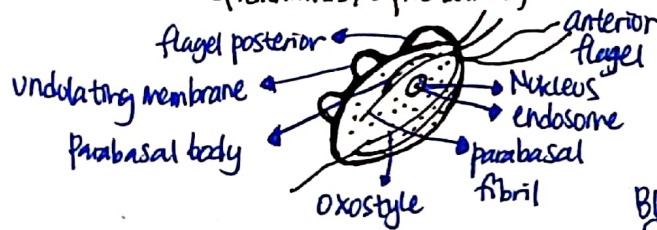 flagel posterior
anterior
flagel
undulating membrane
Nukleus
endosome
Parabasal body
parabasal
fibril
oxostyle